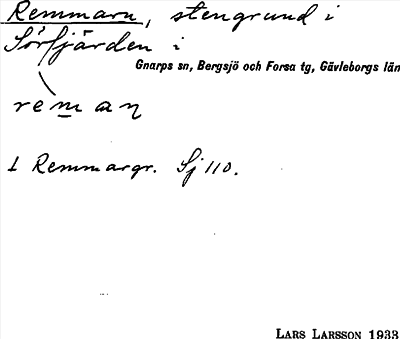 Remmarn, stengrund i
Sörfjärden i
Gnarps sn, Bergsjö och Forsa tg, Gävleborgs län
reman
1 Remmargr. Sj 110.
LARS LARSSON 1933